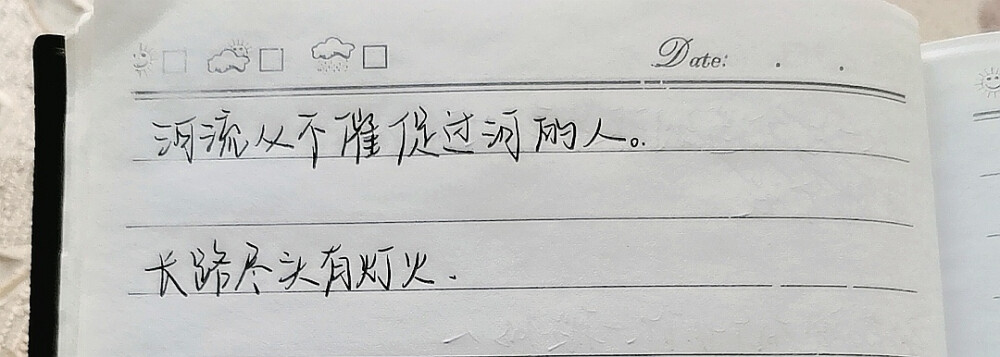 Date: . .
河流从不催促过河的人。
长路尽头有灯火.